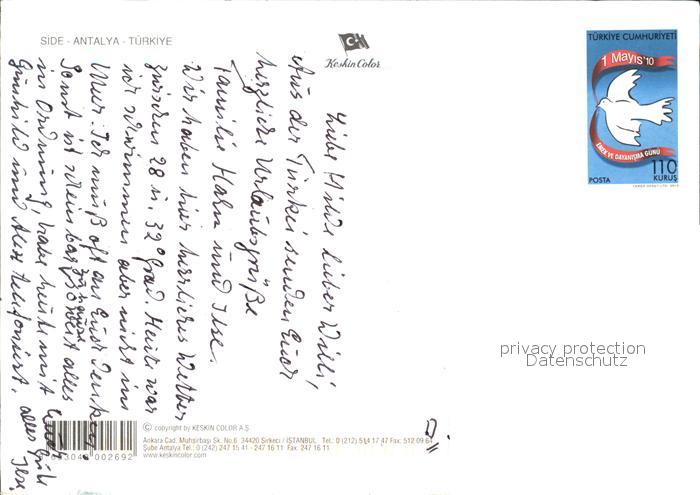 SIDE - ANTALYA - TÜRKİYE
Keskin Color
TÜRKİYE CUMHURİYETİ
1 Mayıs'10
EMEK VE DAYANIŞMA GÜNÜ
110
KURUŞ
POSTA
Liebe Hilde lieber Willi,
Aus der Türkei senden Euch
herzliche Urlaubsgrüße
Familie Hahn und Ilse.
Wir haben hier herrliches Wetter
zwischen 28 u. 32° Grad. Heute war
ich schwimmen aber nicht im
Meer. Ich muß oft an Euch denken
Sonst ist scheinbar zuhause soweit alles
in Ordnung, habe heute mit
Gunhild und Alex telefoniert. alles Gute
Ilse
privacy protection
Datenschutz
© copyright by KESKIN COLOR A.Ş.
Ankara Cad. Muhsirbaşı Sk. No.6 34420 Sirkeci / İSTANBUL Tel.: 0 (212) 514 17 47 Fax: 512 09 64
Şube Antalya Tel.: 0 (242) 247 15 41 - 247 16 11 Fax: 247 16 11
www.keskincolor.com
002692